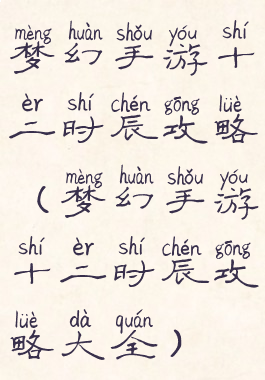 mèng huàn shǒu yóu shí
梦幻手游十
èr shí chén gōng lüè
二时辰攻略
mèng huàn shǒu yóu
（梦幻手游
shí èr shí chén gōng
十二时辰攻
lüè dà quán
略大全）